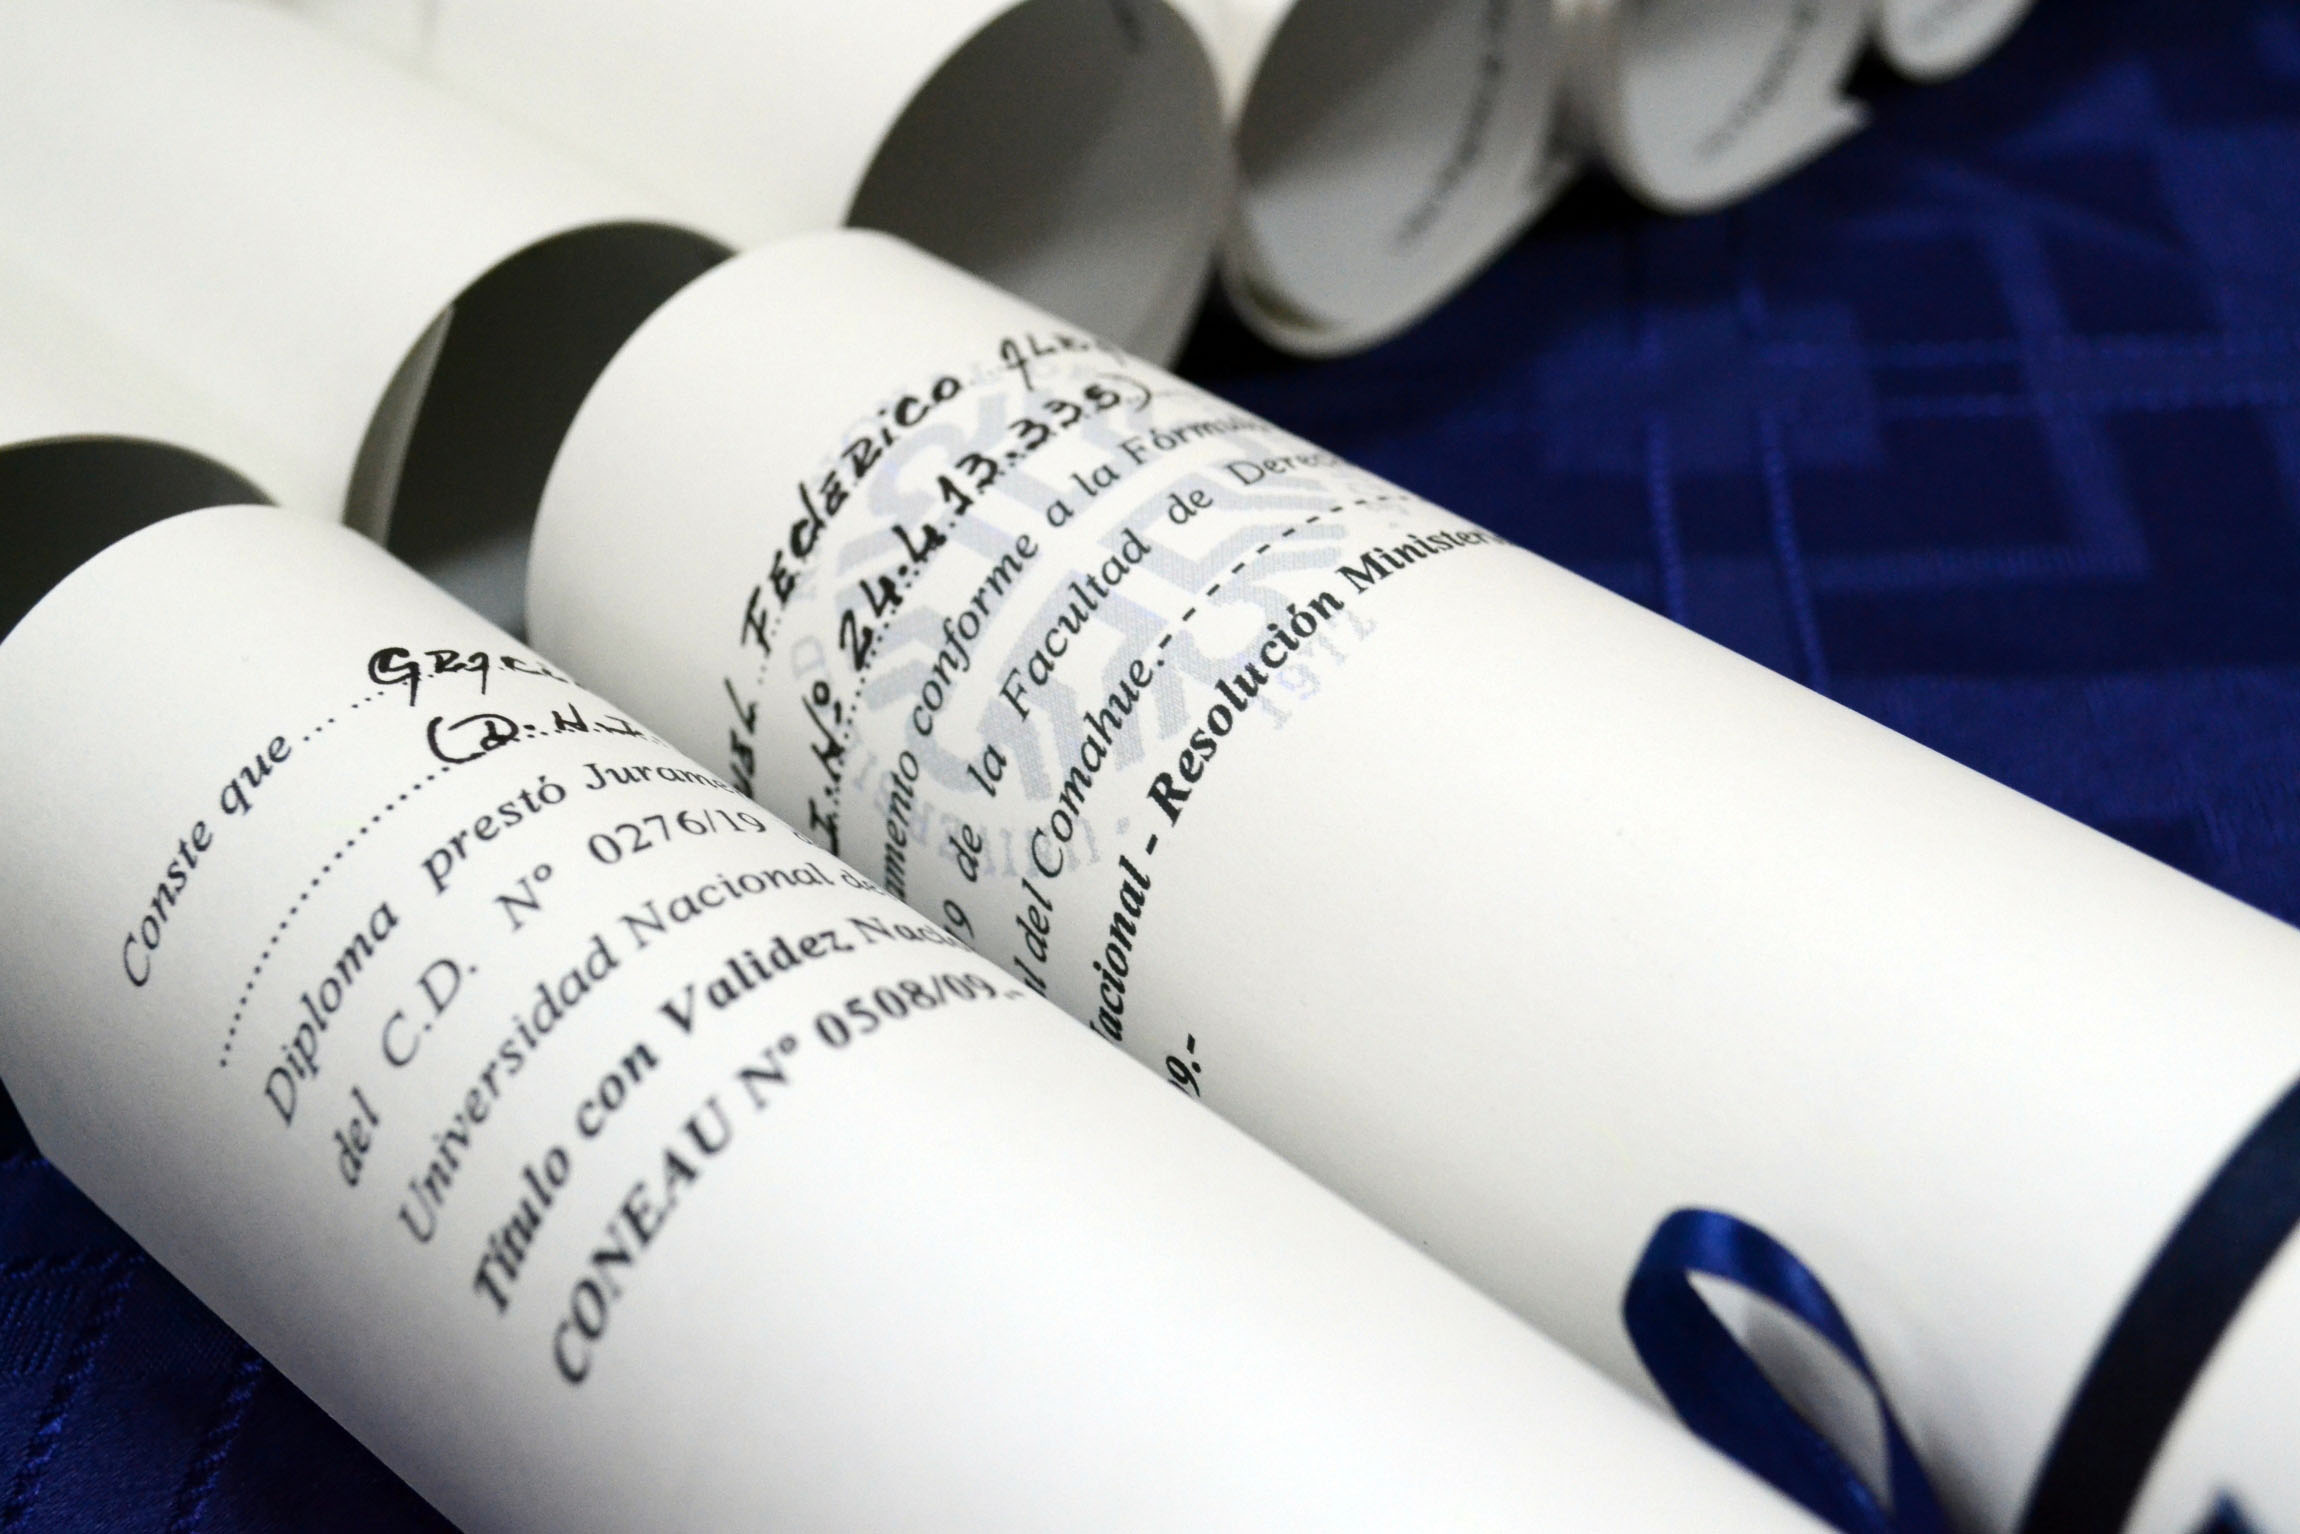 Conste que
(D.N.I.
Diploma prestó Jurame
del C.D. N° 0276/19
Universidad Nacional de
Título con Validez Naci
CONEAU N° 0508/09.-
Federico Ale
I. N° 24.413.335)
amento conforme a la Fórmul
9 de la Facultad de Derec
l del Comahue.-
acional - Resolución Minister
09.-
1972